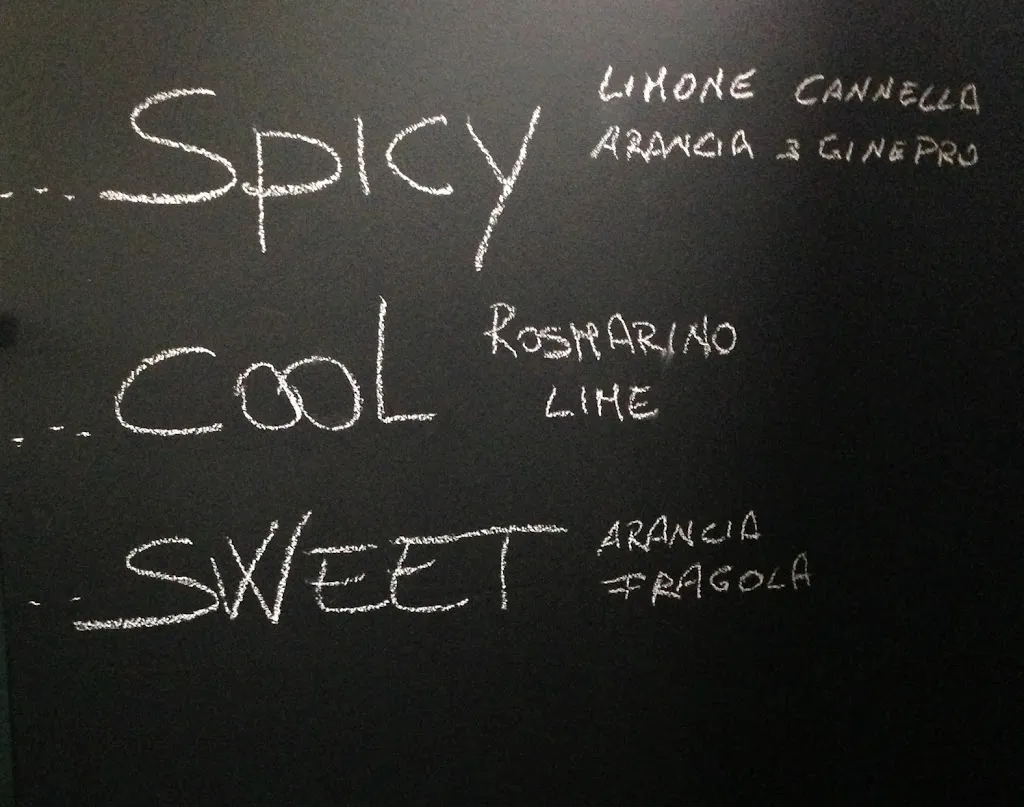 ...SPICY
LIMONE CANNELLA
ARANCIA & GINEPRO
...COOL
ROSMARINO
LIME
...SWEET
ARANCIA
FRAGOLA